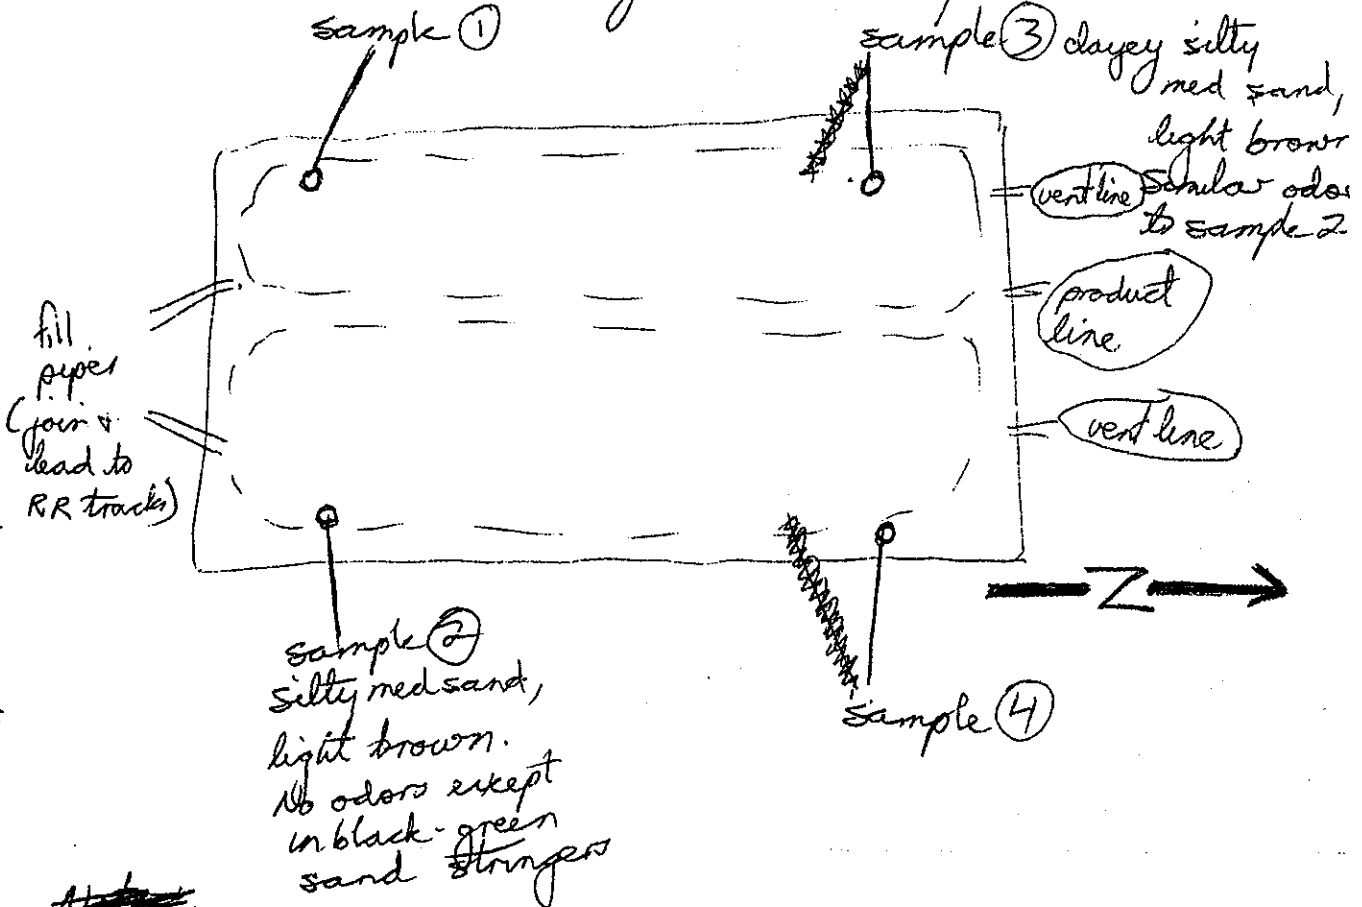 sample ①
sample ③ clayey silty
med sand,
light brown
Similar odor
to sample 2
vent line
product
line
vent line
fill
pipes
(join &
lead to
RR tracks)
Z
sample ②
silty med sand,
light brown.
No odors except
in black-green
sand stringers
sample ④